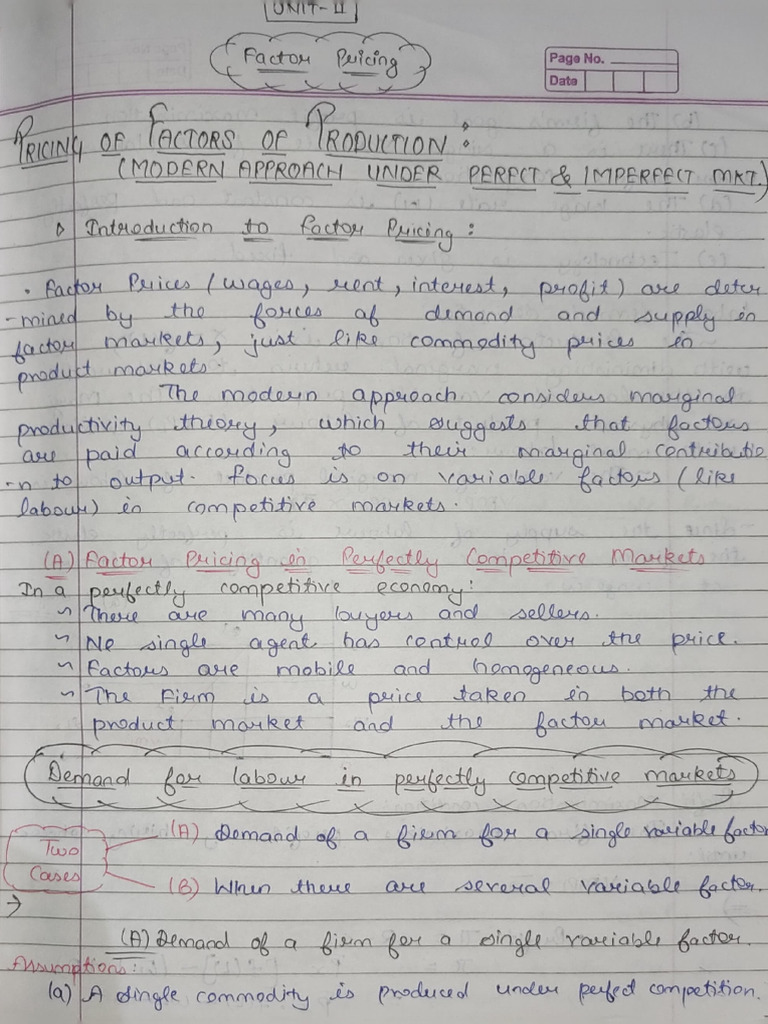 UNIT-II
Factor Pricing
Page No.
Date
PRICING OF FACTORS OF PRODUCTION:
(MODERN APPROACH UNDER PERFECT & IMPERFECT MKT.)
Introduction to Factor Pricing:
• Factor Prices (wages, rent, interest, profit) are deter
-mined by the forces of demand and supply in
factor markets, just like commodity prices in
product markets.
The modern approach considers marginal
productivity theory, which suggests that factors
are paid according to their marginal contributio
-n to output. Focus is on variable factors (like
labour) in competitive markets.
(A) Factor Pricing in Perfectly Competitive Markets
In a perfectly competitive economy:
~ There are many buyers and sellers.
~ No single agent has control over the price.
~ Factors are mobile and homogeneous.
~ The Firm is a price taker in both the
product market and the factor market.
Demand for labour in perfectly competitive markets
Two Cases
(A) Demand of a firm for a single variable factor
(B) When there are several variable factor.
→
(A) Demand of a firm for a single variable factor.
Assumptions:
(a) A single commodity is produced under perfect competition.